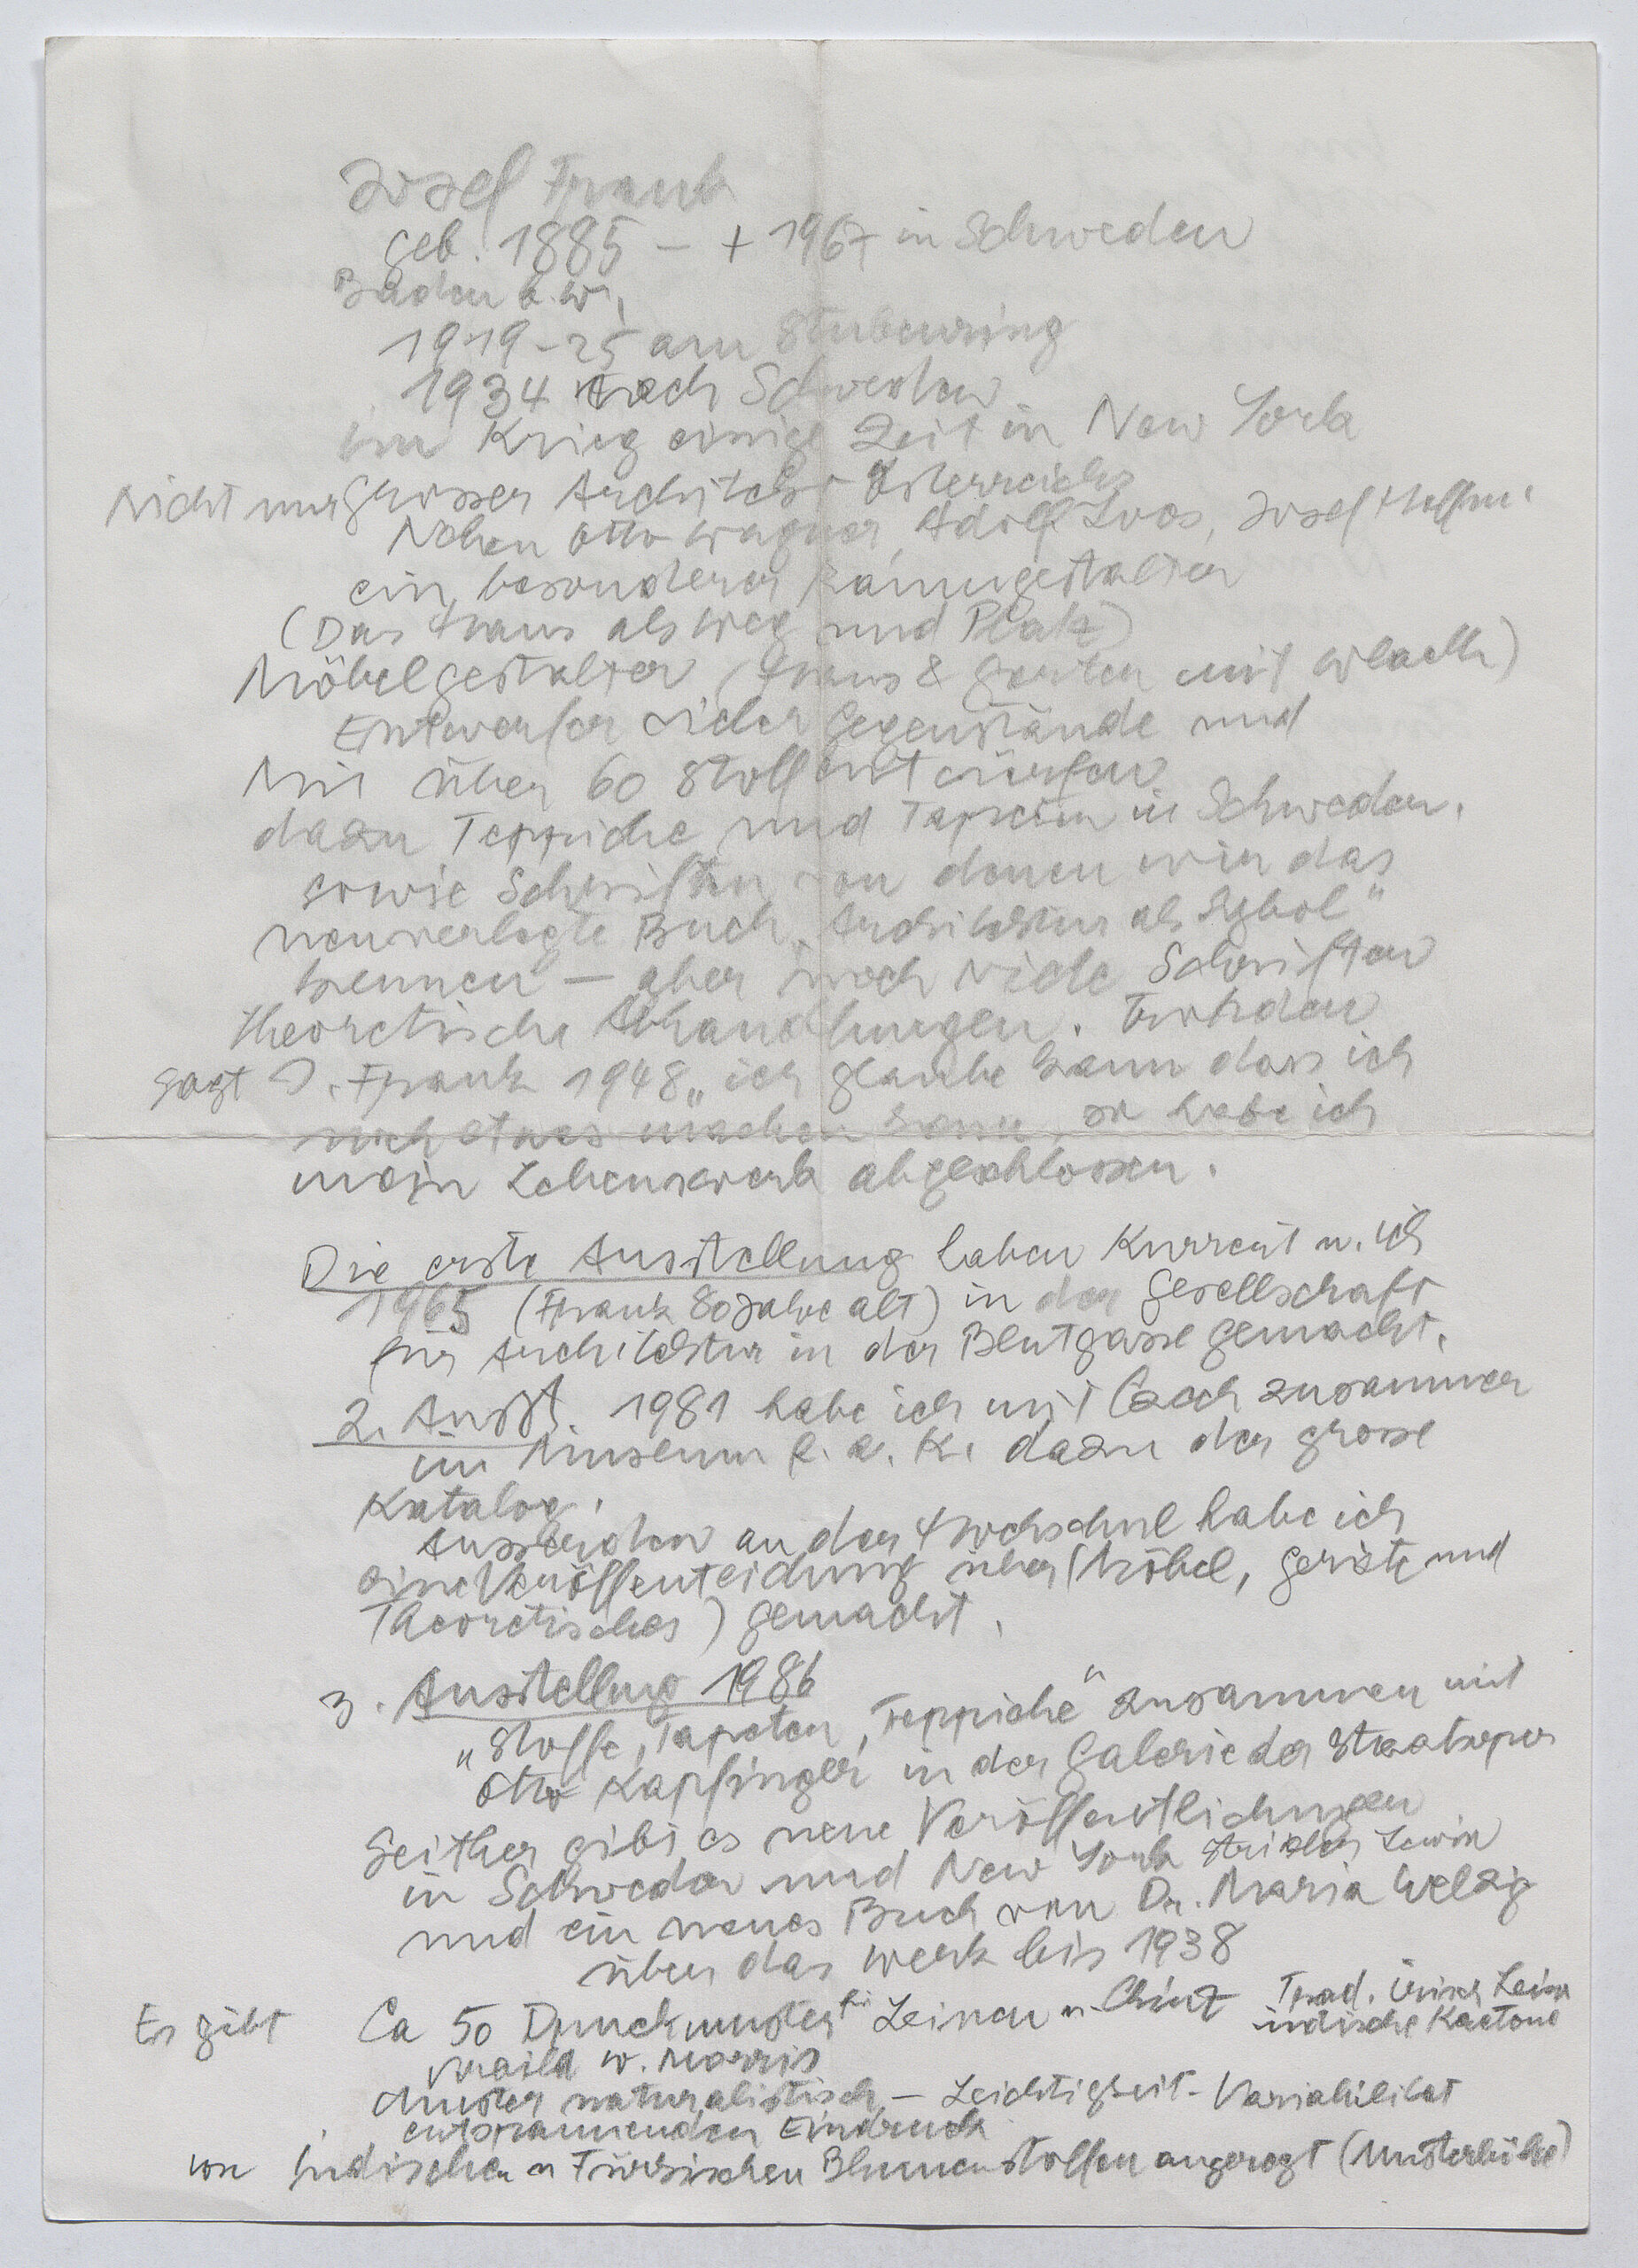 Josef Frank
geb. 1885 – + 1967 in Schweden
Baden b. W.
1919–25 am Stubenring
1934 nach Schweden
im Krieg einige Zeit in New York
Nicht nur grosser Architekt Österreichs
Neben Otto Wagner, Adolf Loos, Josef Hoffm.
ein besonderer Raumgestalter
(Das Haus als Weg und Platz)
Möbelgestalter (Haus & Garten mit Wlach)
Entwerfer vieler Gegenstände und
Mit über 60 Stoffentwürfen
dazu Teppiche und Tapeten in Schweden.
sowie Schriften von denen wir das
neuverlegte Buch „Architektur als Symbol“
kennen – aber noch viele Schriften
theoretische Abhandlungen. Trotzdem
sagt J. Frank 1948 „ich glaube kaum dass ich
noch etwas machen kann, so habe ich
mein Lebenswerk abgeschlossen.
Die erste Ausstellung haben Kurrent u. ich
1965 (Frank 80 Jahre alt) in der Gesellschaft
für Architektur in der Blutgasse gemacht.
2. Ausst. 1981 habe ich mit Czech zusammen
im Museum f. a. K. dazu der grosse
Katalog.
Ausserdem an der Hochschule habe ich
eine Veröffentlichung über (Möbel, Geräte und
Theoretisches) gemacht.
3. Ausstellung 1986
„Stoffe, Tapeten, Teppiche“ zusammen mit
Otto Kapfinger in der Galerie der Staatsoper
Seither gibt es neue Veröffentlichungen
in Schweden und New York Lewin
und ein neues Buch von Dr. Maria Welzig
über das Werk bis 1938
Es gibt Ca 50 Druckmuster für Leinen u. Chintz Trad. Irisch Leinen
indische Kattone
W. Morris
Muster naturalistisch – Leichtigkeit – Variabilität
entspannenden Eindruck
von Indischen u Türkischen Blumenstoffen angeregt (Musterbücher)